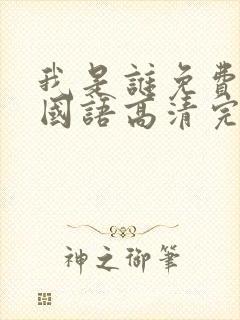 我是誰免費
國語高清完
神之御筆